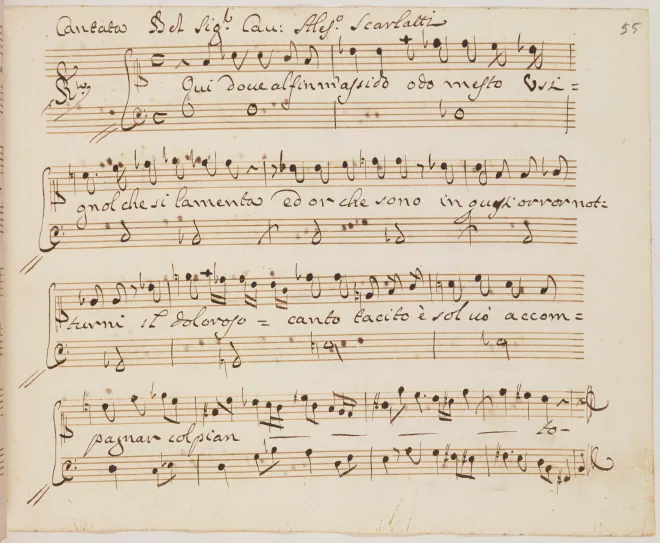 Cantata Del Sig.r Cav: Aless.o Scarlatti
55
Qui dove alfin m'assido odo mesto Usi=
gnol che si lamenta ed or che sono in quest' orror not=
turni il doloroso = canto tacito è sol vo' accom=
pagnar col pian to-